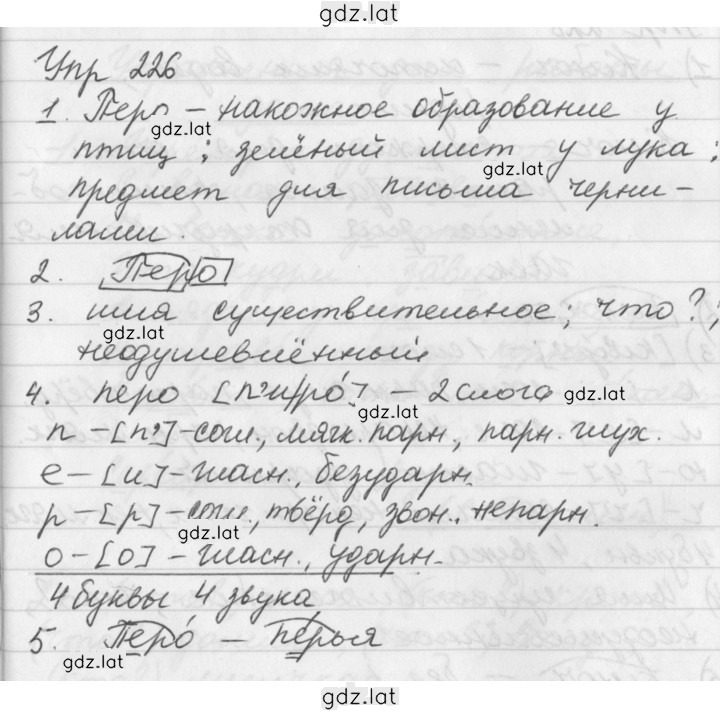 gdz.lat
Упр 226
1. Перо – накожное образование у
gdz.lat
птиц; зелёный лист у лука;
gdz.lat
предмет для письма черни-
лами.
2. Перо
3. имя существительное; что?;
gdz.lat
неодушевлённый
4. перо [п'и/ро́] – 2 слога gdz.lat
gdz.lat
п – [п'] – согл., мягк. парн., парн. глух.
е – [и] – гласн., безударн.
р – [р] – согл., твёрд, звон., непарн.
gdz.lat
о – [о] – гласн., ударн.
4 буквы 4 звука
5. Перо́ – пе́рья
gdz.lat
gdz.lat